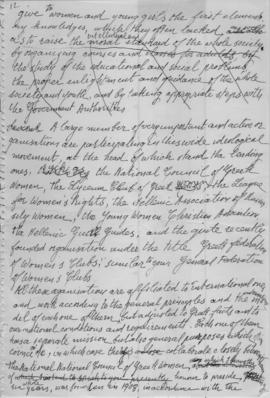 12
give to women and young girls the first elementa
ry knowledges, which they often lacked,
intellectual and
to raise the moral standard of the whole society
by organising courses and
the study of the educational and social problems
the proper enlightment and guidance of the whole
society and youth, and by taking appropriate steps with
the Government Authorities
A large number of very important and active or
ganisations are participating in these wide ideological
movement, at the head of which stand the leading
ones. the National Council of Greek
Women, the Lyceum Club of Greek the League
for Women's Rights, the Hellenic Association of Univer
sity Women, the Young Women Christian Association
the Hellenic Guides, and the quite recently
founded organisation under the title Greek Federation
of Women's Clubs, similar to your General Federation
of Women's Clubs
All these organisations are affiliated to international ones
and work according to the general principles and the mo
del of each one of them but adjusted to Greek facts and to
our national conditions and requirements. Both one of them
has a separate mission, but also general purposes which
in which case they collaborate closely
the National Council of Greek Women,
of which I to preside
years, was founded in 1908, in accordance with the